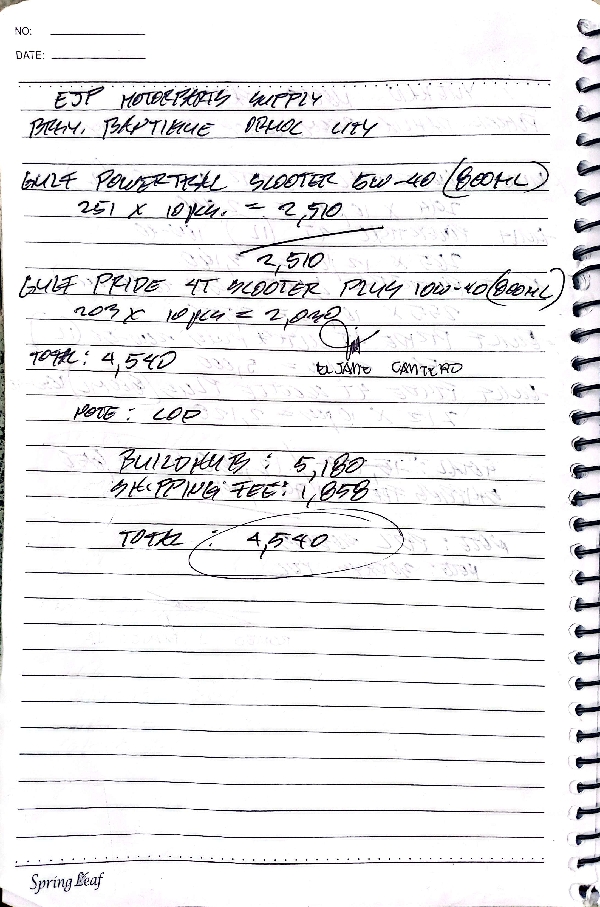 NO:
DATE:
EJP MOTORPARTS SUPPLY
BRGY. BANTIGUE ORMOC CITY
GULF POWERTRAC SCOOTER 5W-40 (800ML)
251 x 10 pcs. = 2,510
2,510
GULF PRIDE 4T SCOOTER PLUS 10W-40 (800ML)
203 x 10 pcs = 2,030
TOTAL: 4,540
CANTERO
NOTE: COD
BUILDHUB: 5,180
SHIPPING FEE: 1,858
TOTAL: 4,540
Spring Leaf